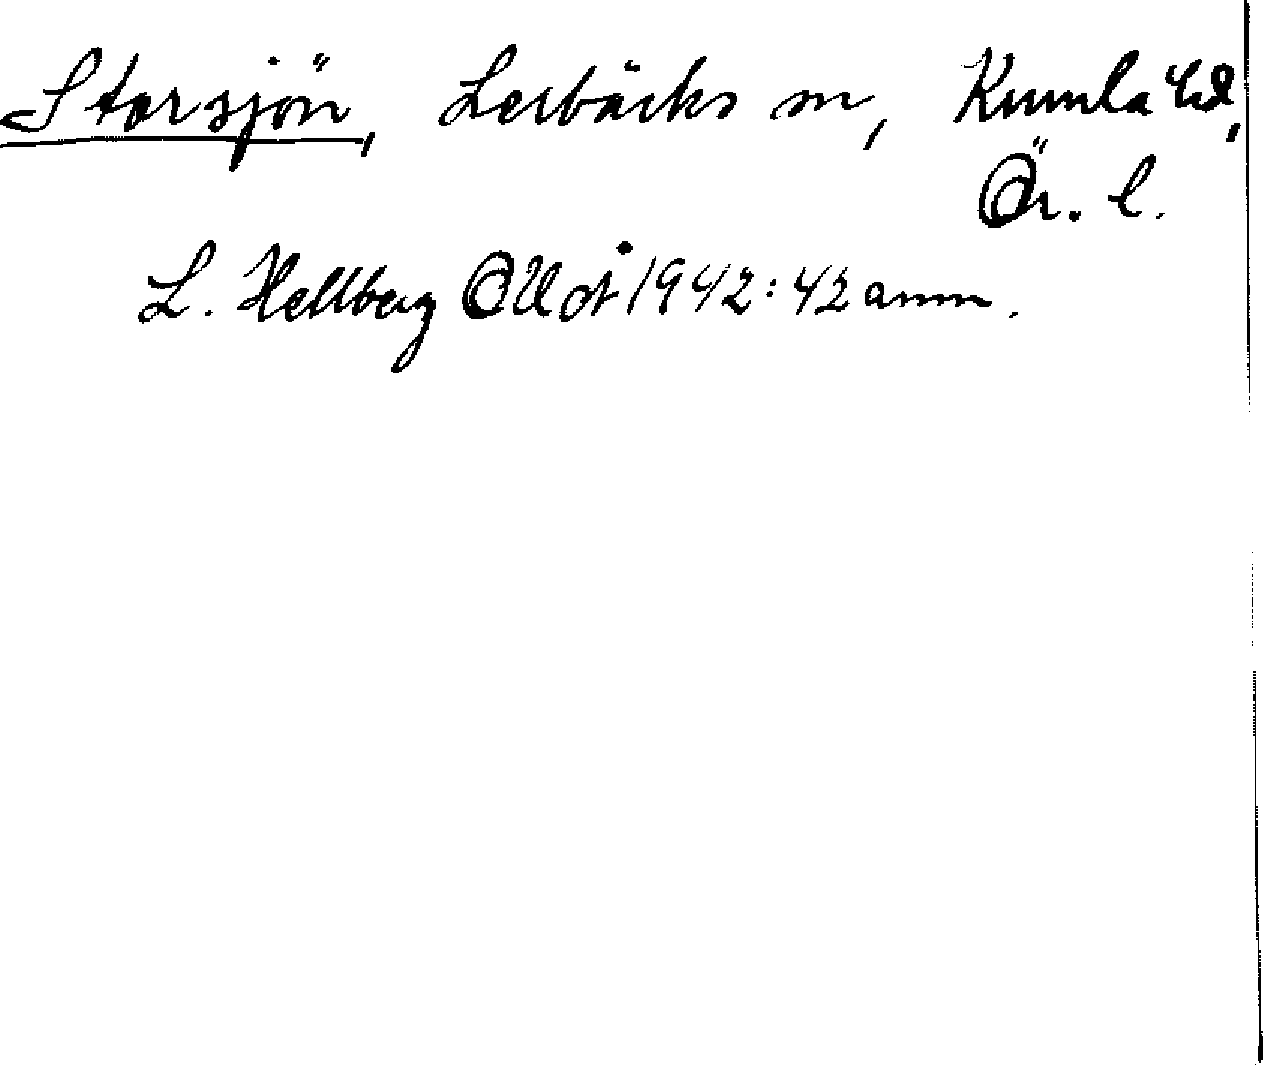 Storsjön, Lerbäcks sn, Kumla hd,
Ör. l.
L. Hellberg OUÅ 1942:42 anm.